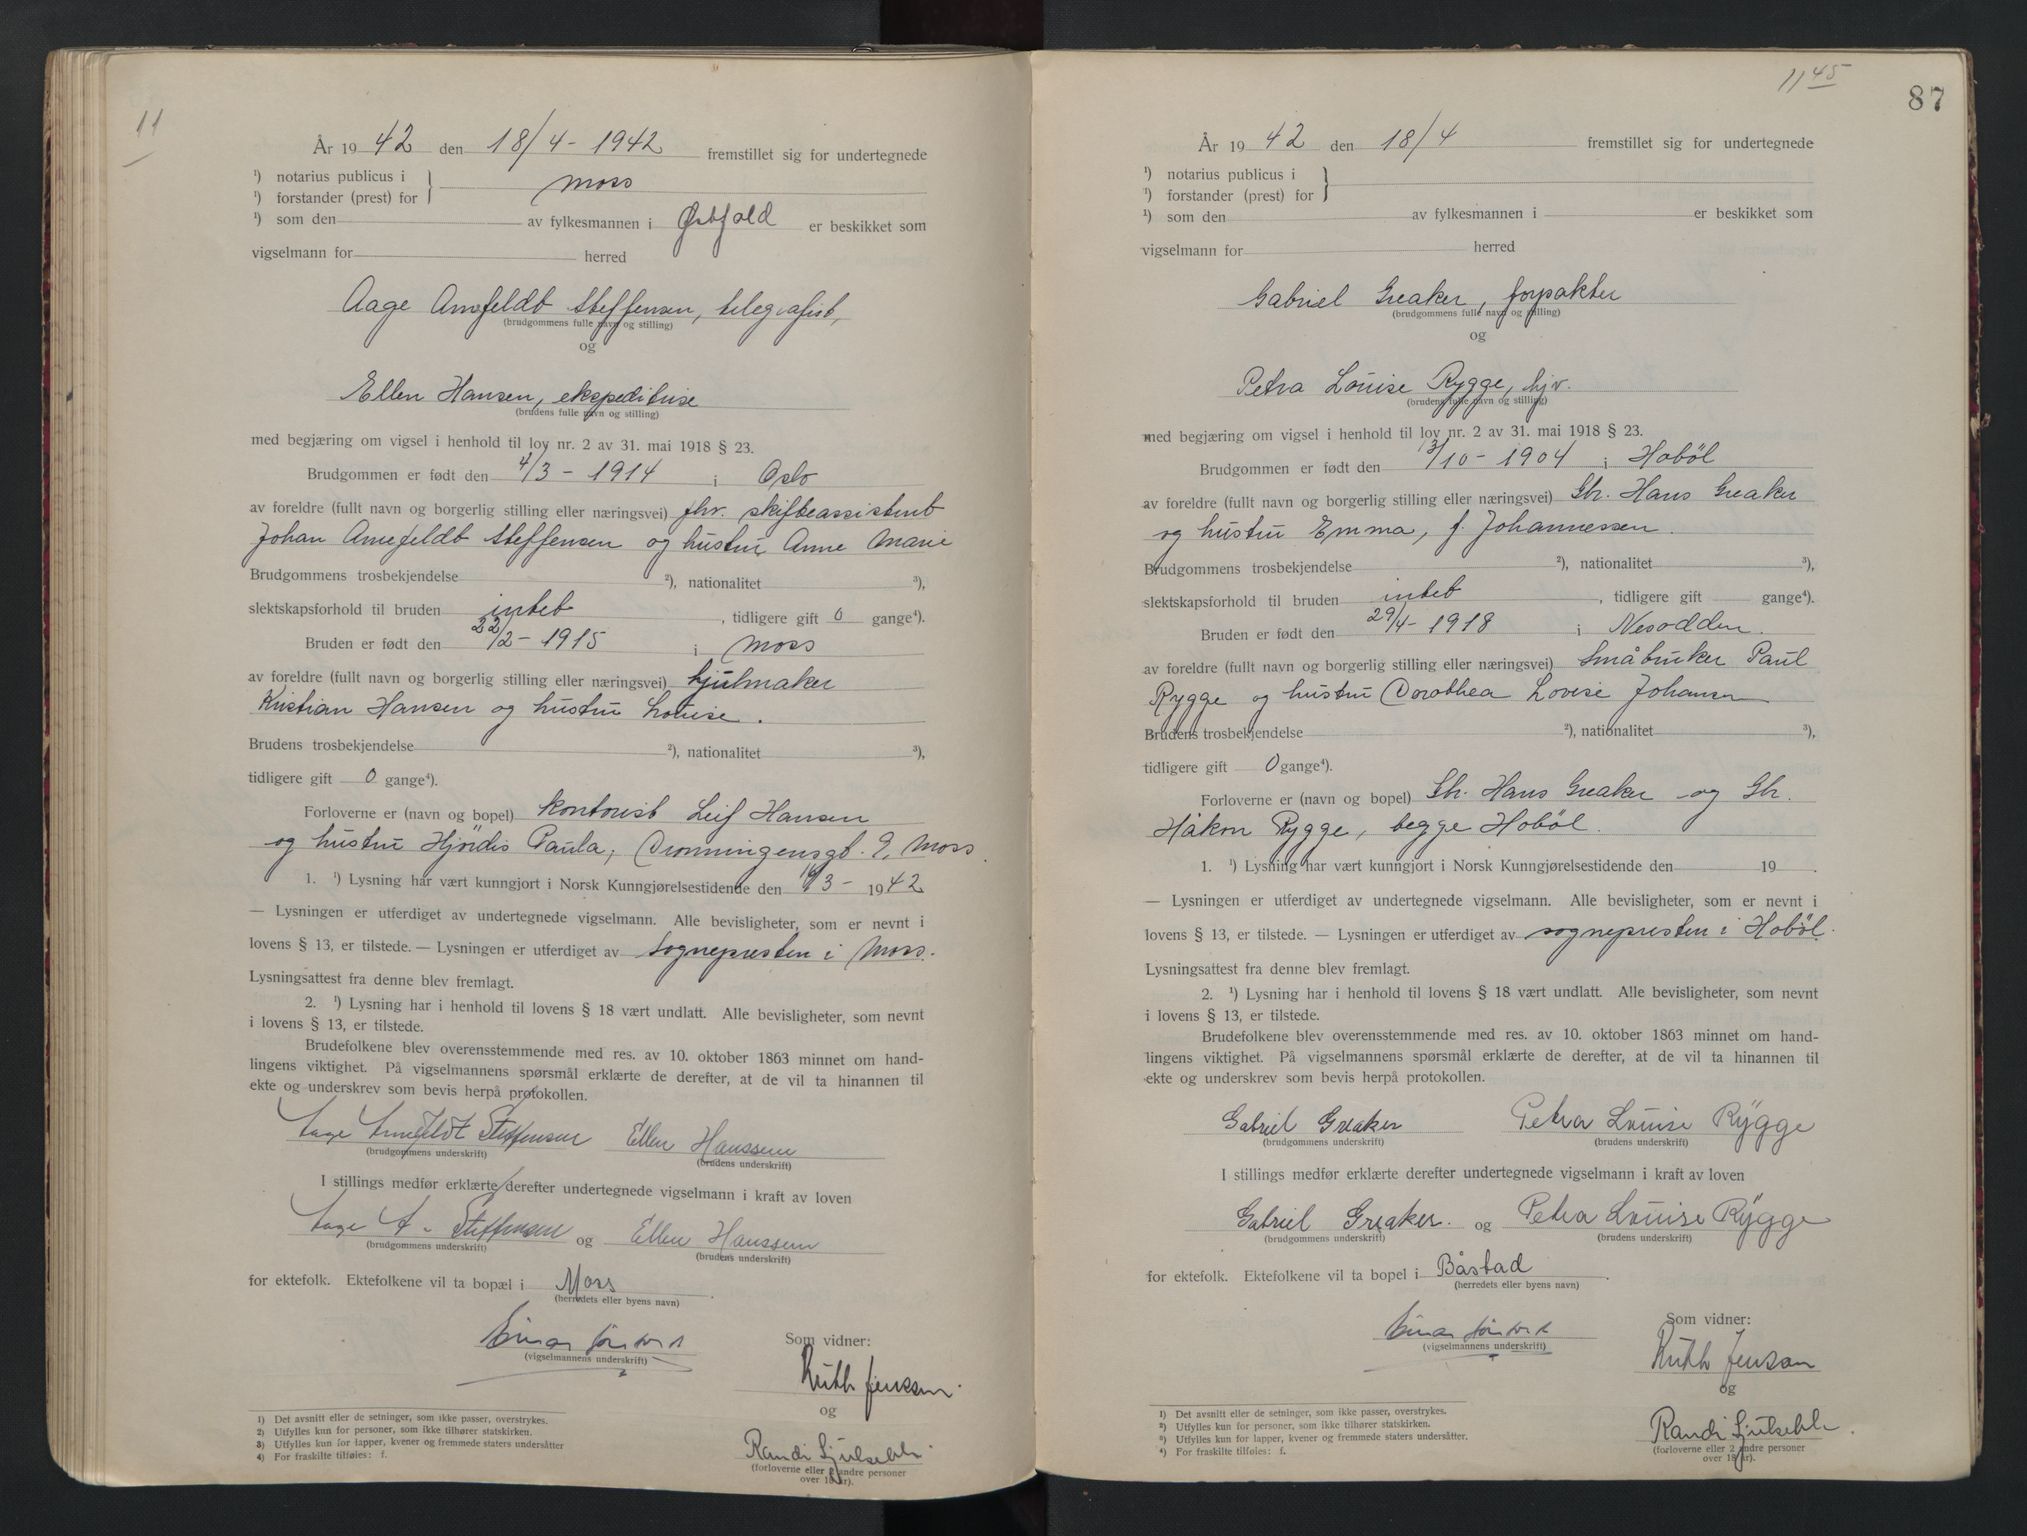 11
År 1942 den 18/4 - 1942 fremstillet sig for undertegnede
¹) notarius publicus i } Moss
¹) forstander (prest) for
¹) som den av fylkesmannen i Østfold er beskikket som
vigselmann for herred
Aage Amfeldt Steffensen, telegrafist,
(brudgommens fulle navn og stilling)
og
Ellen Hansen, ekspeditrise
(brudens fulle navn og stilling)
med begjæring om vigsel i henhold til lov nr. 2 av 31. mai 1918 § 23.
Brudgommen er født den 4/3 - 1914 i Oslo
av foreldre (fullt navn og borgerlig stilling eller næringsvei) fhv. skifteassistent
Johan Amfeldt Steffensen og hustru Anne Marie
Brudgommens trosbekjendelse ²), nationalitet ³),
slektskapsforhold til bruden intet , tidligere gift 0 gange⁴).
Bruden er født den 22/2 - 1915 i Moss
av foreldre (fullt navn og borgerlig stilling eller næringsvei) hjulmaker
Kristian Hansen og hustru Louise.
Brudens trosbekjendelse ²), nationalitet ³),
tidligere gift 0 gange⁴).
Forloverne er (navn og bopel) kontorist Leif Hansen
og hustru Hjördis Paula, Dronningensgt. 9, Moss.
1. ¹) Lysning har vært kunngjort i Norsk Kunngjørelsestidende den /3 - 1942
— Lysningen er utferdiget av undertegnede vigselmann. Alle bevisligheter, som er nevnt i
lovens § 13, er tilstede. — Lysningen er utferdiget av sognepresten i Moss.
Lysningsattest fra denne blev fremlagt.
2. ¹) Lysning har i henhold til lovens § 18 vært undlatt. Alle bevisligheter, som nevnt
i lovens § 13, er tilstede.
Brudefolkene blev overensstemmende med res. av 10. oktober 1863 minnet om hand-
lingens viktighet. På vigselmannens spørsmål erklærte de derefter, at de vil ta hinannen til
ekte og underskrev som bevis herpå protokollen.
Aage Amfeldt Steffensen Ellen Hanssen
(brudgommens underskrift) (brudens underskrift)
I stillings medfør erklærte derefter undertegnede vigselmann i kraft av loven
Aage A. Steffensen og Ellen Hanssen
(brudgommens underskrift) (brudens underskrift)
for ektefolk. Ektefolkene vil ta bopæl i Moss
(herredets eller byens navn)
Einar
(vigselmannens underskrift)
Som vidner:
Ruth Jenssen.
og
Randi
(forloverne eller 2 andre personer
over 18 år).
1) Det avsnitt eller de setninger, som ikke passer, overstrykes.
2) Utfylles kun for personer, som ikke tilhører statskirken.
3) Utfylles kun for lapper, kvener og fremmede staters undersåtter
4) For fraskilte tilføies: f.
11 45
87
År 1942 den 18/4 fremstillet sig for undertegnede
¹) notarius publicus i }
¹) forstander (prest) for
¹) som den av fylkesmannen i er beskikket som
vigselmann for herred
Gabriel Greaker, forpakter
(brudgommens fulle navn og stilling)
og
Petra Louise Rygge, hjv.
(brudens fulle navn og stilling)
med begjæring om vigsel i henhold til lov nr. 2 av 31. mai 1918 § 23.
Brudgommen er født den 13/10 - 1904 i Hobøl
av foreldre (fullt navn og borgerlig stilling eller næringsvei) Gbr. Hans Greaker
og hustru Emma, f. Johannessen.
Brudgommens trosbekjendelse ²), nationalitet ³),
slektskapsforhold til bruden intet , tidligere gift gange⁴).
Bruden er født den 29/4 - 1918 i Nesodden.
av foreldre (fullt navn og borgerlig stilling eller næringsvei) Småbruker Paul
Rygge og hustru Dorothea Lovise Johansen
Brudens trosbekjendelse ²), nationalitet ³),
tidligere gift 0 gange⁴).
Forloverne er (navn og bopel) Gbr. Hans Greaker og Gbr.
Håkon Rygge, begge Hobøl.
1. ¹) Lysning har vært kunngjort i Norsk Kunngjørelsestidende den 19 .
— Lysningen er utferdiget av undertegnede vigselmann. Alle bevisligheter, som er nevnt i
lovens § 13, er tilstede. — Lysningen er utferdiget av sognepresten i Hobøl.
Lysningsattest fra denne blev fremlagt.
2. ¹) Lysning har i henhold til lovens § 18 vært undlatt. Alle bevisligheter, som nevnt
i lovens § 13, er tilstede.
Brudefolkene blev overensstemmende med res. av 10. oktober 1863 minnet om hand-
lingens viktighet. På vigselmannens spørsmål erklærte de derefter, at de vil ta hinannen til
ekte og underskrev som bevis herpå protokollen.
Gabriel Greaker Petra Louise Rygge
(brudgommens underskrift) (brudens underskrift)
I stillings medfør erklærte derefter undertegnede vigselmann i kraft av loven
Gabriel Greaker. og Petra Louise Rygge
(brudgommens underskrift) (brudens underskrift)
for ektefolk. Ektefolkene vil ta bopel i Båstad
(herredets eller byens navn)
Einar
(vigselmannens underskrift)
Som vidner:
Ruth Jensen
og
Randi
(forloverne eller 2 andre personer
over 18 år).
1) Det avsnitt eller de setninger, som ikke passer, overstrykes.
2) Utfylles kun for personer, som ikke tilhører statskirken.
3) Utfylles kun for lapper, kvener og fremmede staters undersåtter.
4) For fraskilte tilføies: f.